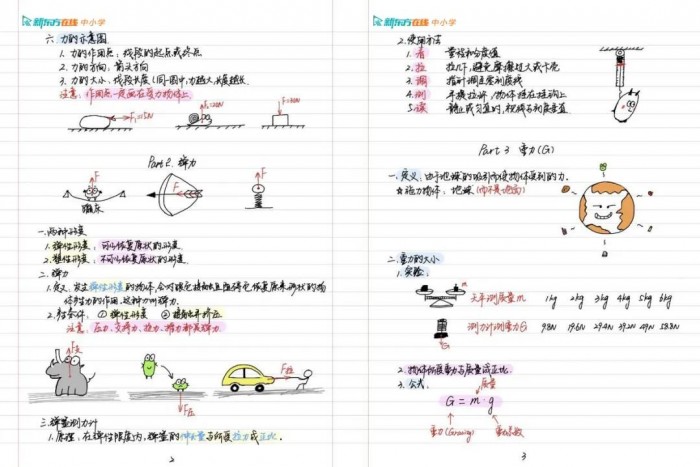 新东方在线 中小学
六. 力的示意图
1. 力的作用点: 线段的起点或终点
2. 力的方向: 箭头方向
3. 力的大小: 线段长度(同一图中,力越大,线段越长)
注意: 作用点一定画在受力物体上
F₁=15N
F₂=20N
F=30N
Part 2. 弹力
F
蹦床
F
F
一. 两种形变
1. 弹性形变: 可以恢复原状的形变
2. 塑性形变: 不可以恢复原状的形变
二. 弹力
1. 定义: 发生弹性形变的物体,会对跟它接触且
2. 条件: ① 弹性形变 ② 接触
注意: 压力、支持力、拉力、推力都是弹力.
F支
F压
F拉
三. 弹簧测力计
1. 原理: 在弹性限度内,弹簧的伸长量与所受拉力成正比.
2
新东方在线 中小学
2. 使用方法
1. 看 量程和分度值
2. 拉 拉几下,避免摩擦过大或卡壳
3. 调 指针调至零刻度线
4. 测 平稳拉,物体挂在挂钩上
5. 读 静止或匀速时,视线与刻度垂直
Part 3 重力(G)
一. 定义: 由于地球的吸引而使物体受到的力.
☆ 施力物体: 地球
二. 重力的大小
1. 实验:
天平测质量m 1kg 2kg 3kg 4kg 5kg 6kg
测力计测重力G 9.8N 19.6N 29.4N 39.2N 49N 58.8N
2. 物体所受重力与质量成正比.
3. 公式:
质量
G = m·g
重力(Gravity)
重力系数
3